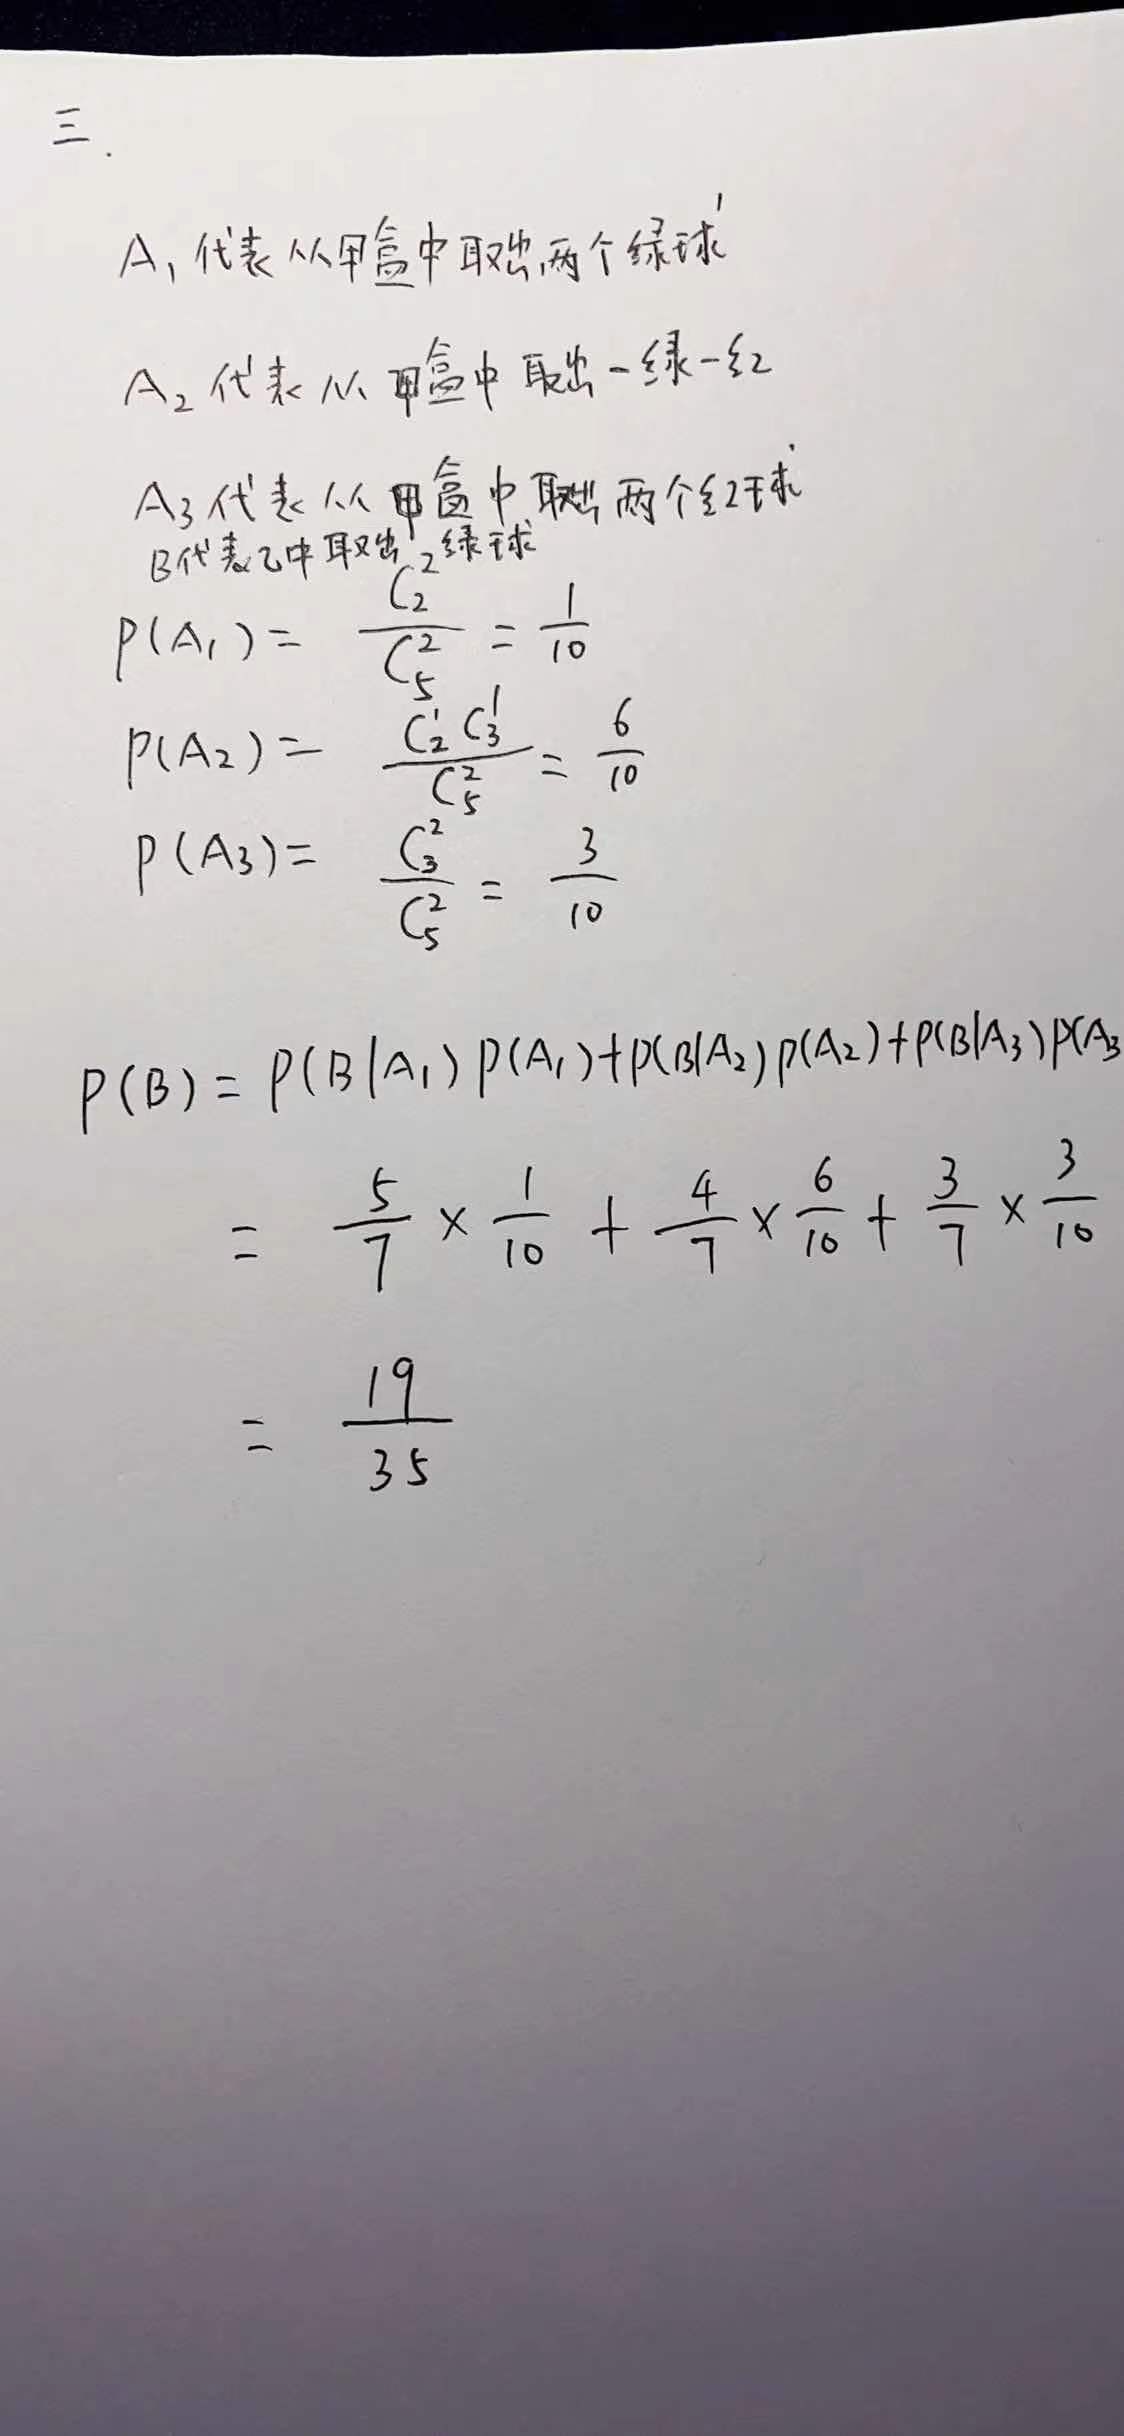 三.
A₁代表从甲盒中取出两个绿球
A₂代表从甲盒中取出一绿一红
A₃代表从甲盒中取出两个红球
B代表乙中取出绿球
P(A₁) = C₂²/C₅² = 1/10
P(A₂) = C₂¹C₃¹/C₅² = 6/10
P(A₃) = C₃²/C₅² = 3/10
P(B) = P(B|A₁)P(A₁)+P(B|A₂)P(A₂)+P(B|A₃)P(A₃
= 5/7 × 1/10 + 4/7 × 6/10 + 3/7 × 3/10
= 19/35